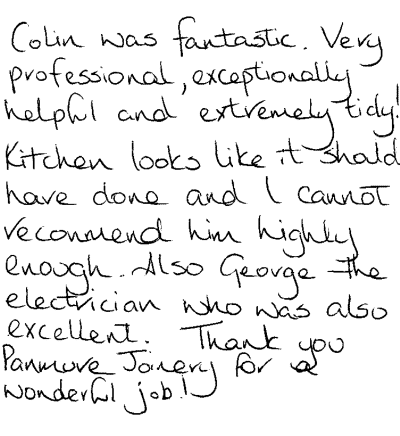 Colin was fantastic. Very
professional, exceptionally
helpful and extremely tidy!
Kitchen looks like it should
have done and I cannot
recommend him highly
enough. Also George the
electrician who was also
excellent. Thank you
Panmure Joinery for a
wonderful job!